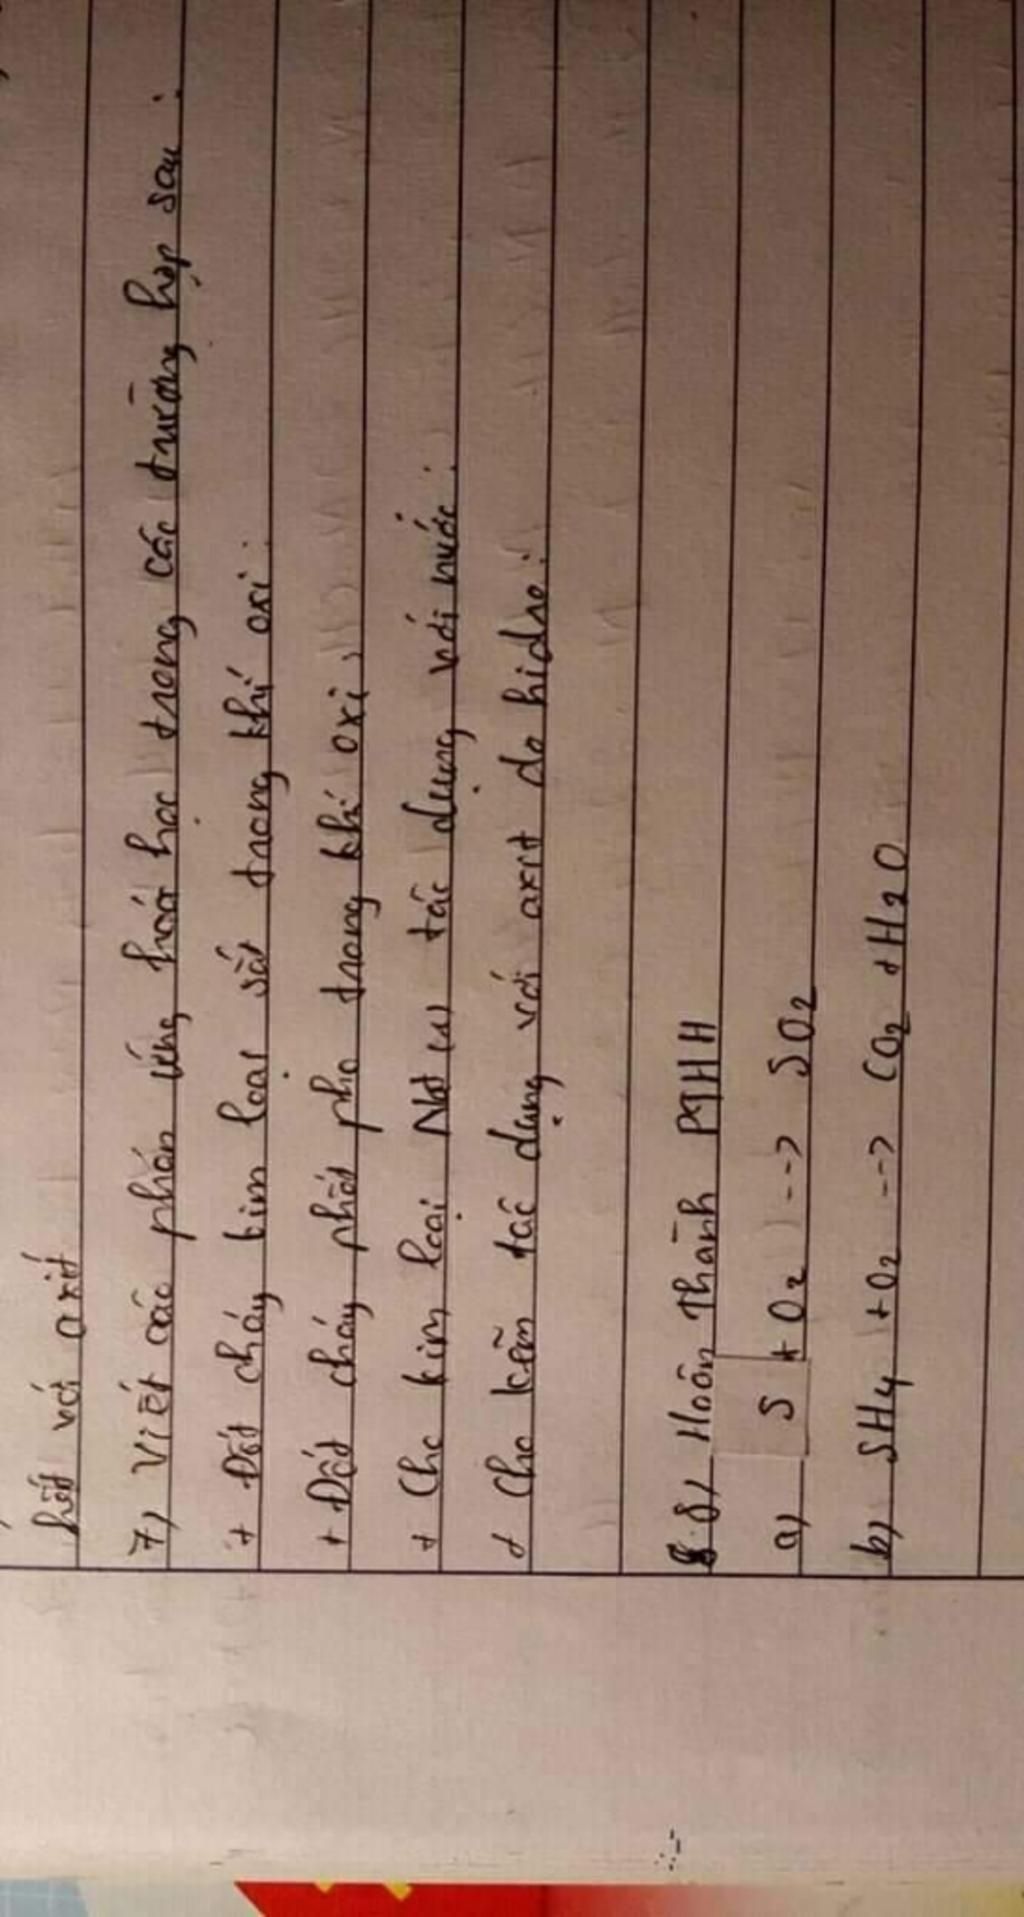 hết với axit
7, Viết các phản ứng hoá học trong các trường hợp sau:
+ Đốt cháy kim loại sắt trong khí oxi.
+ Đốt cháy phốt pho trong khí oxi,
+ Cho kim loại tác dụng với nước:
+ Cho kẽm tác dụng với axit do hidro:
8, Hoàn Thành PTHH
a) S + O2 --> SO2
b) SH4 + O2 --> CO2 + H2O